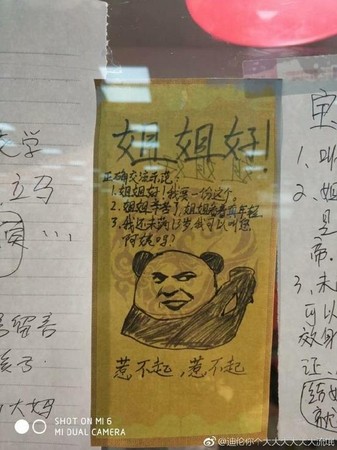 姐姐好!
正确交流示范:
1.姐姐好!我要一份这个。
2.姐姐辛苦了,姐姐看着真年轻
3.我还未满13岁,我可以叫您
阿姨吗?
惹不起,惹不起
文学
立马
留言
孩子
大妈
1.叫
2.姐
是
帝.
3.未
可以
效身
证、
就
SHOT ON MI 6
MI DUAL CAMERA
@迪伦你个大大大大大大流氓